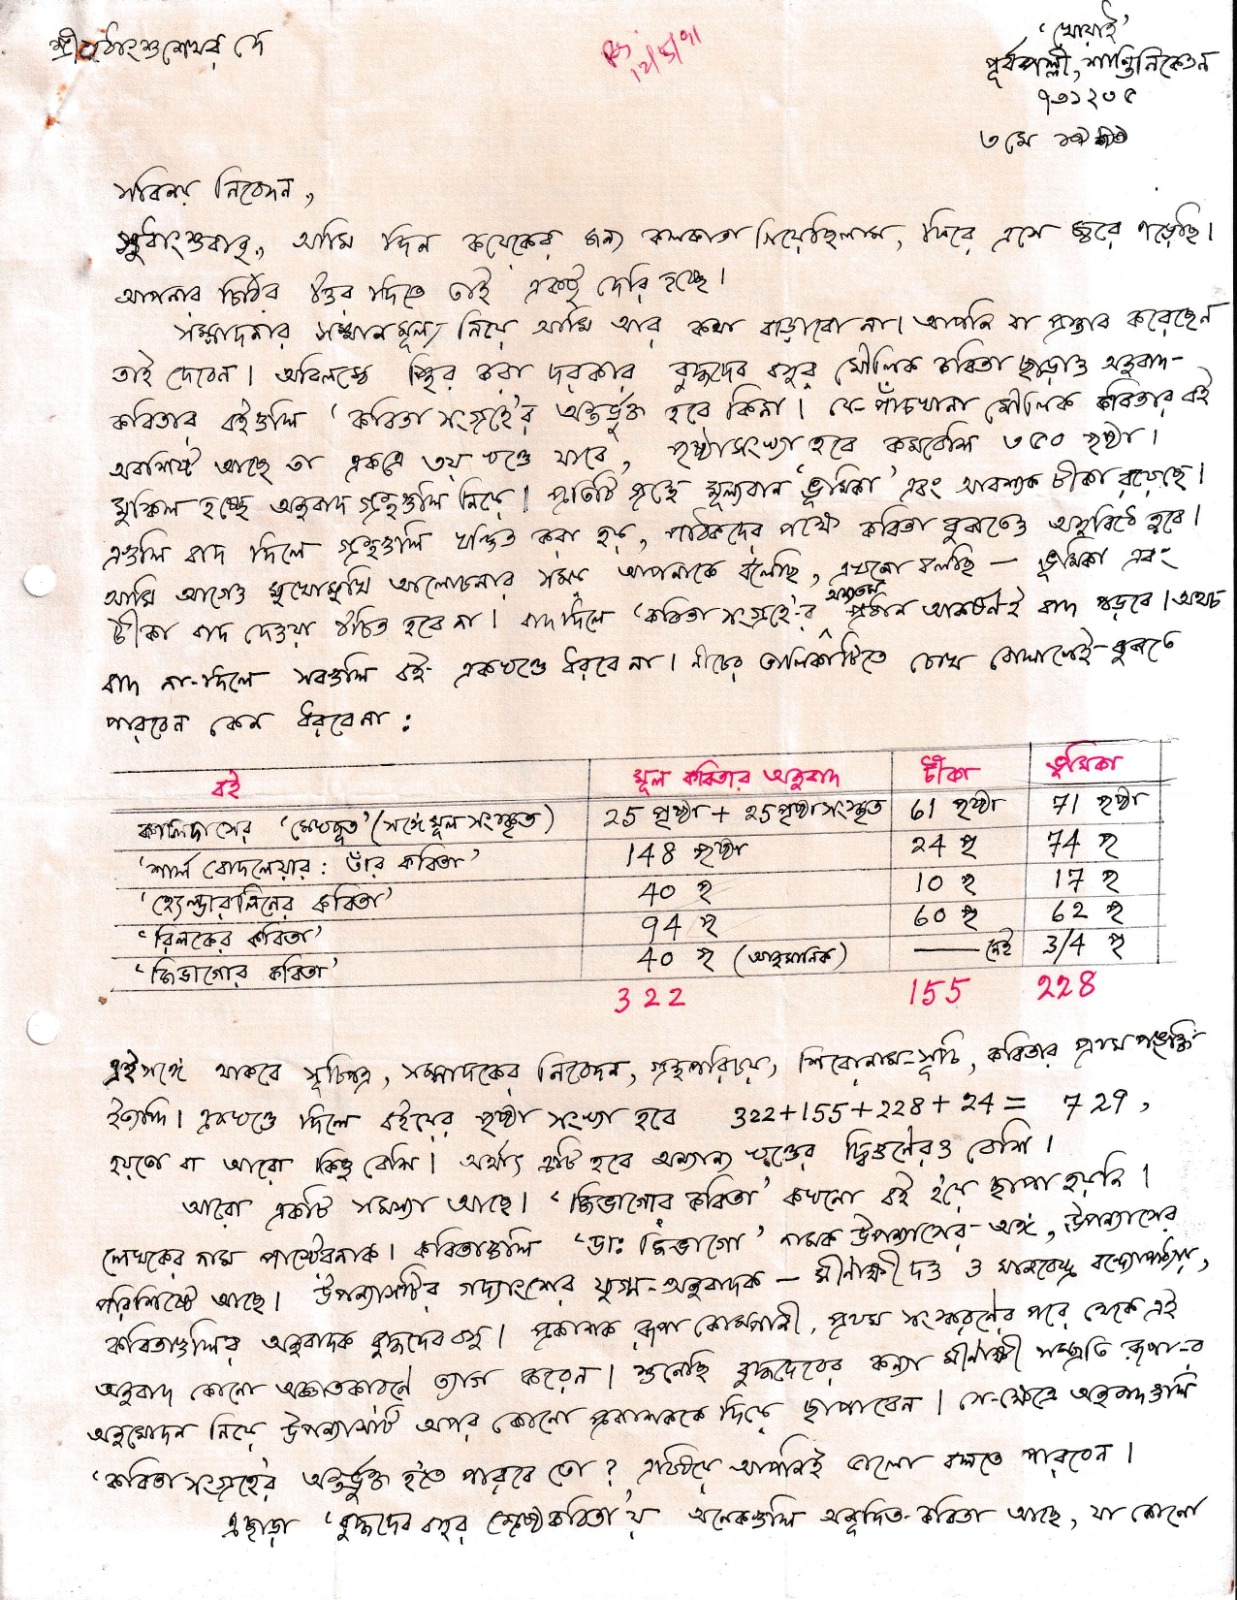 শ্রীসুধাংশুশেখর দে
12/5/91
'খোয়াই'
পূর্বপল্লী, শান্তিনিকেতন
৭৩১২৩৫
৩ মে
সবিনয় নিবেদন,
সুধাংশুবাবু, আমি দিন কয়েকের জন্য কলকাতা গিয়েছিলাম, ফিরে এসে জ্বরে পড়েছি।
আপনার চিঠির উত্তর দিতে তাই একটু দেরি হচ্ছে।
সম্পাদনার সম্মানমূল্য নিয়ে আমি আর কথা বাড়াবো না। আপনি যা প্রস্তাব করেছেন
তাই দেবেন। অবিলম্বে স্থির করা দরকার বুদ্ধদেব বসুর মৌলিক কবিতা ছাড়াও অনুবাদ-
কবিতার বইগুলি 'কবিতা সংগ্রহে'র অন্তর্ভুক্ত হবে কিনা। যে-পাঁচখানা মৌলিক কবিতার বই
অবশিষ্ট আছে তা একত্রে ৩য় খণ্ডে যাবে, পৃষ্ঠাসংখ্যা হবে কমবেশি ৩৫০ পৃষ্ঠা।
মুস্কিল হচ্ছে অনুবাদ গ্রন্থগুলি নিয়ে। প্রতিটি গ্রন্থে মূল্যবান 'ভূমিকা' এবং আবশ্যক টীকা রয়েছে।
এগুলি বাদ দিলে গ্রন্থগুলি খণ্ডিত করা হয়, পাঠকদের পক্ষে কবিতা বুঝতেও অসুবিধে হবে।
আমি আগেও মুখোমুখি আলোচনার সময় আপনাকে বলেছি, এখনো বলছি — ভূমিকা এবং
টীকা বাদ দেওয়া উচিত হবে না। বাদ দিলে 'কবিতা সংগ্রহে'র অন্যতম প্রধান আকর্ষণই বাদ পড়বে। অথচ
বাদ না-দিলে সবগুলি বই একখণ্ডে ধরবে না। নীচের তালিকাটিতে চোখ বোলালেই বুঝতে
পারবেন কেন ধরবে না:
বই মূল কবিতার অনুবাদ টীকা ভূমিকা
কালিদাসের 'মেঘদূত' (সঙ্গে মূল সংস্কৃত) 25 পৃষ্ঠা + 25 পৃষ্ঠা সংস্কৃত 61 পৃষ্ঠা 71 পৃষ্ঠা
'শার্ল বোদলেয়ার: তাঁর কবিতা' 148 পৃষ্ঠা 24 পৃ 74 পৃ
'হ্যেল্ডারলিনের কবিতা' 40 পৃ 10 পৃ 17 পৃ
'রিলকের কবিতা' 94 পৃ 60 পৃ 62 পৃ
'জিভাগোর কবিতা' 40 পৃ (আনুমানিক) — নেই 3/4 পৃ
322 155 228
এই সঙ্গে থাকবে সূচিপত্র, সম্পাদকের নিবেদন, গ্রন্থপরিচয়, শিরোনাম-সূচি, কবিতার প্রথম পঙ্‌ক্তি
ইত্যাদি। একখণ্ডে দিলে বইয়ের পৃষ্ঠা সংখ্যা হবে 322+155+228+24= 729,
হয়তো বা আরো কিছু বেশি। অর্থাৎ এটি হবে অন্যান্য খণ্ডের দ্বিগুণেরও বেশি।
আরো একটি সমস্যা আছে। 'জিভাগোর কবিতা' কখনো বই হয়ে ছাপা হয়নি।
লেখকের নাম পাস্টেরনাক। কবিতাগুলি 'ডাঃ জিভাগো' নামক উপন্যাসের অঙ্গ, উপন্যাসের
পরিশিষ্টে আছে। উপন্যাসটির গদ্যাংশের যুগ্ম-অনুবাদক — মীনাক্ষী দত্ত ও মানবেন্দ্র বন্দ্যোপাধ্যায়,
কবিতাগুলির অনুবাদক বুদ্ধদেব বসু। প্রকাশক রূপা কোম্পানী, প্রথম সংস্করণের পরে থেকে এই
অনুবাদ কোনো অজ্ঞাতকারণে ত্যাগ করেন। শুনেছি বুদ্ধদেবের কন্যা মীনাক্ষী সম্প্রতি রূপা-র
অনুমোদন নিয়ে উপন্যাসটি অপর কোনো প্রকাশককে দিয়ে ছাপাবেন। সে-ক্ষেত্রে অনুবাদগুলি
'কবিতা সংগ্রহে'র অন্তর্ভুক্ত হতে পারবে তো? এবিষয়ে আপনিই ভালো বলতে পারবেন।
এছাড়া 'বুদ্ধদেব বসুর শ্রেষ্ঠ কবিতা'য় অনেকগুলি অনূদিত-কবিতা আছে, যা কোনো